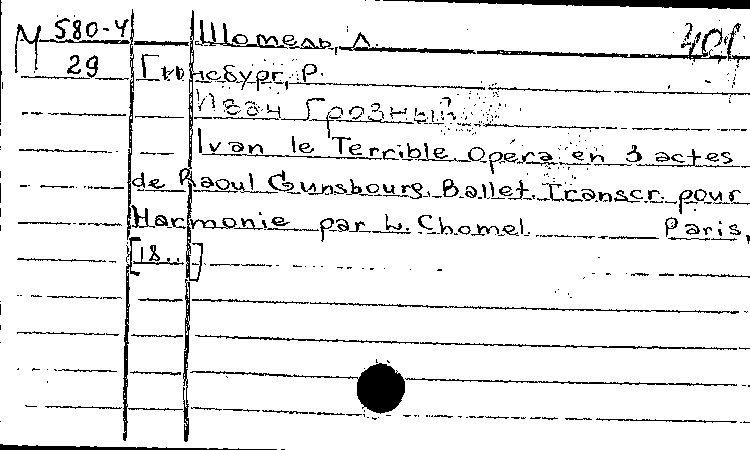 М 580-4 Шомель, Л. 401
29 Гинсбург, Р.
Иван Грозный
Ivan le Terrible Opéra en 3 actes
de Raoul Gunsbourg. Ballet. Transcr. pour
Harmonie par L. Chomel Paris,
[18..]